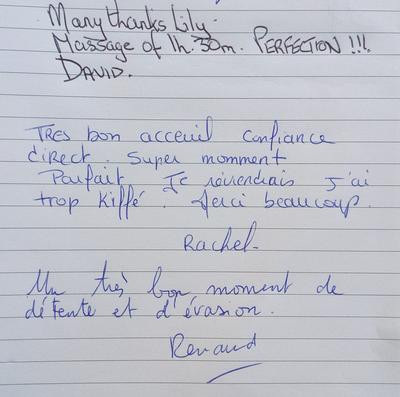 Many thanks Lily.
Massage of 1h.30m. PERFECTION !!!.
DAVID.
TRES bon acceuil Confiance
direct. Super momment
Parfait. Je réviendrais J'ai
trop Kiffé. Merci beaucoup.
Rachel-
Un très bon moment de
détente et d'évasion.
Renaud